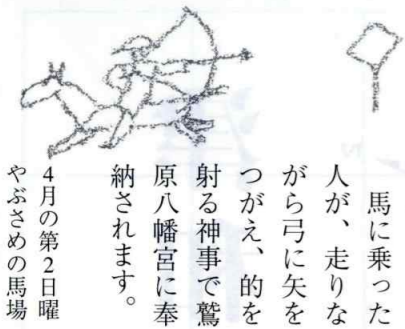 馬に乗った
人が、走りな
がら弓に矢を
つがえ、的を
射る神事で鷲
原八幡宮に奉
納されます。
4月の第2日曜
やぶさめの馬場